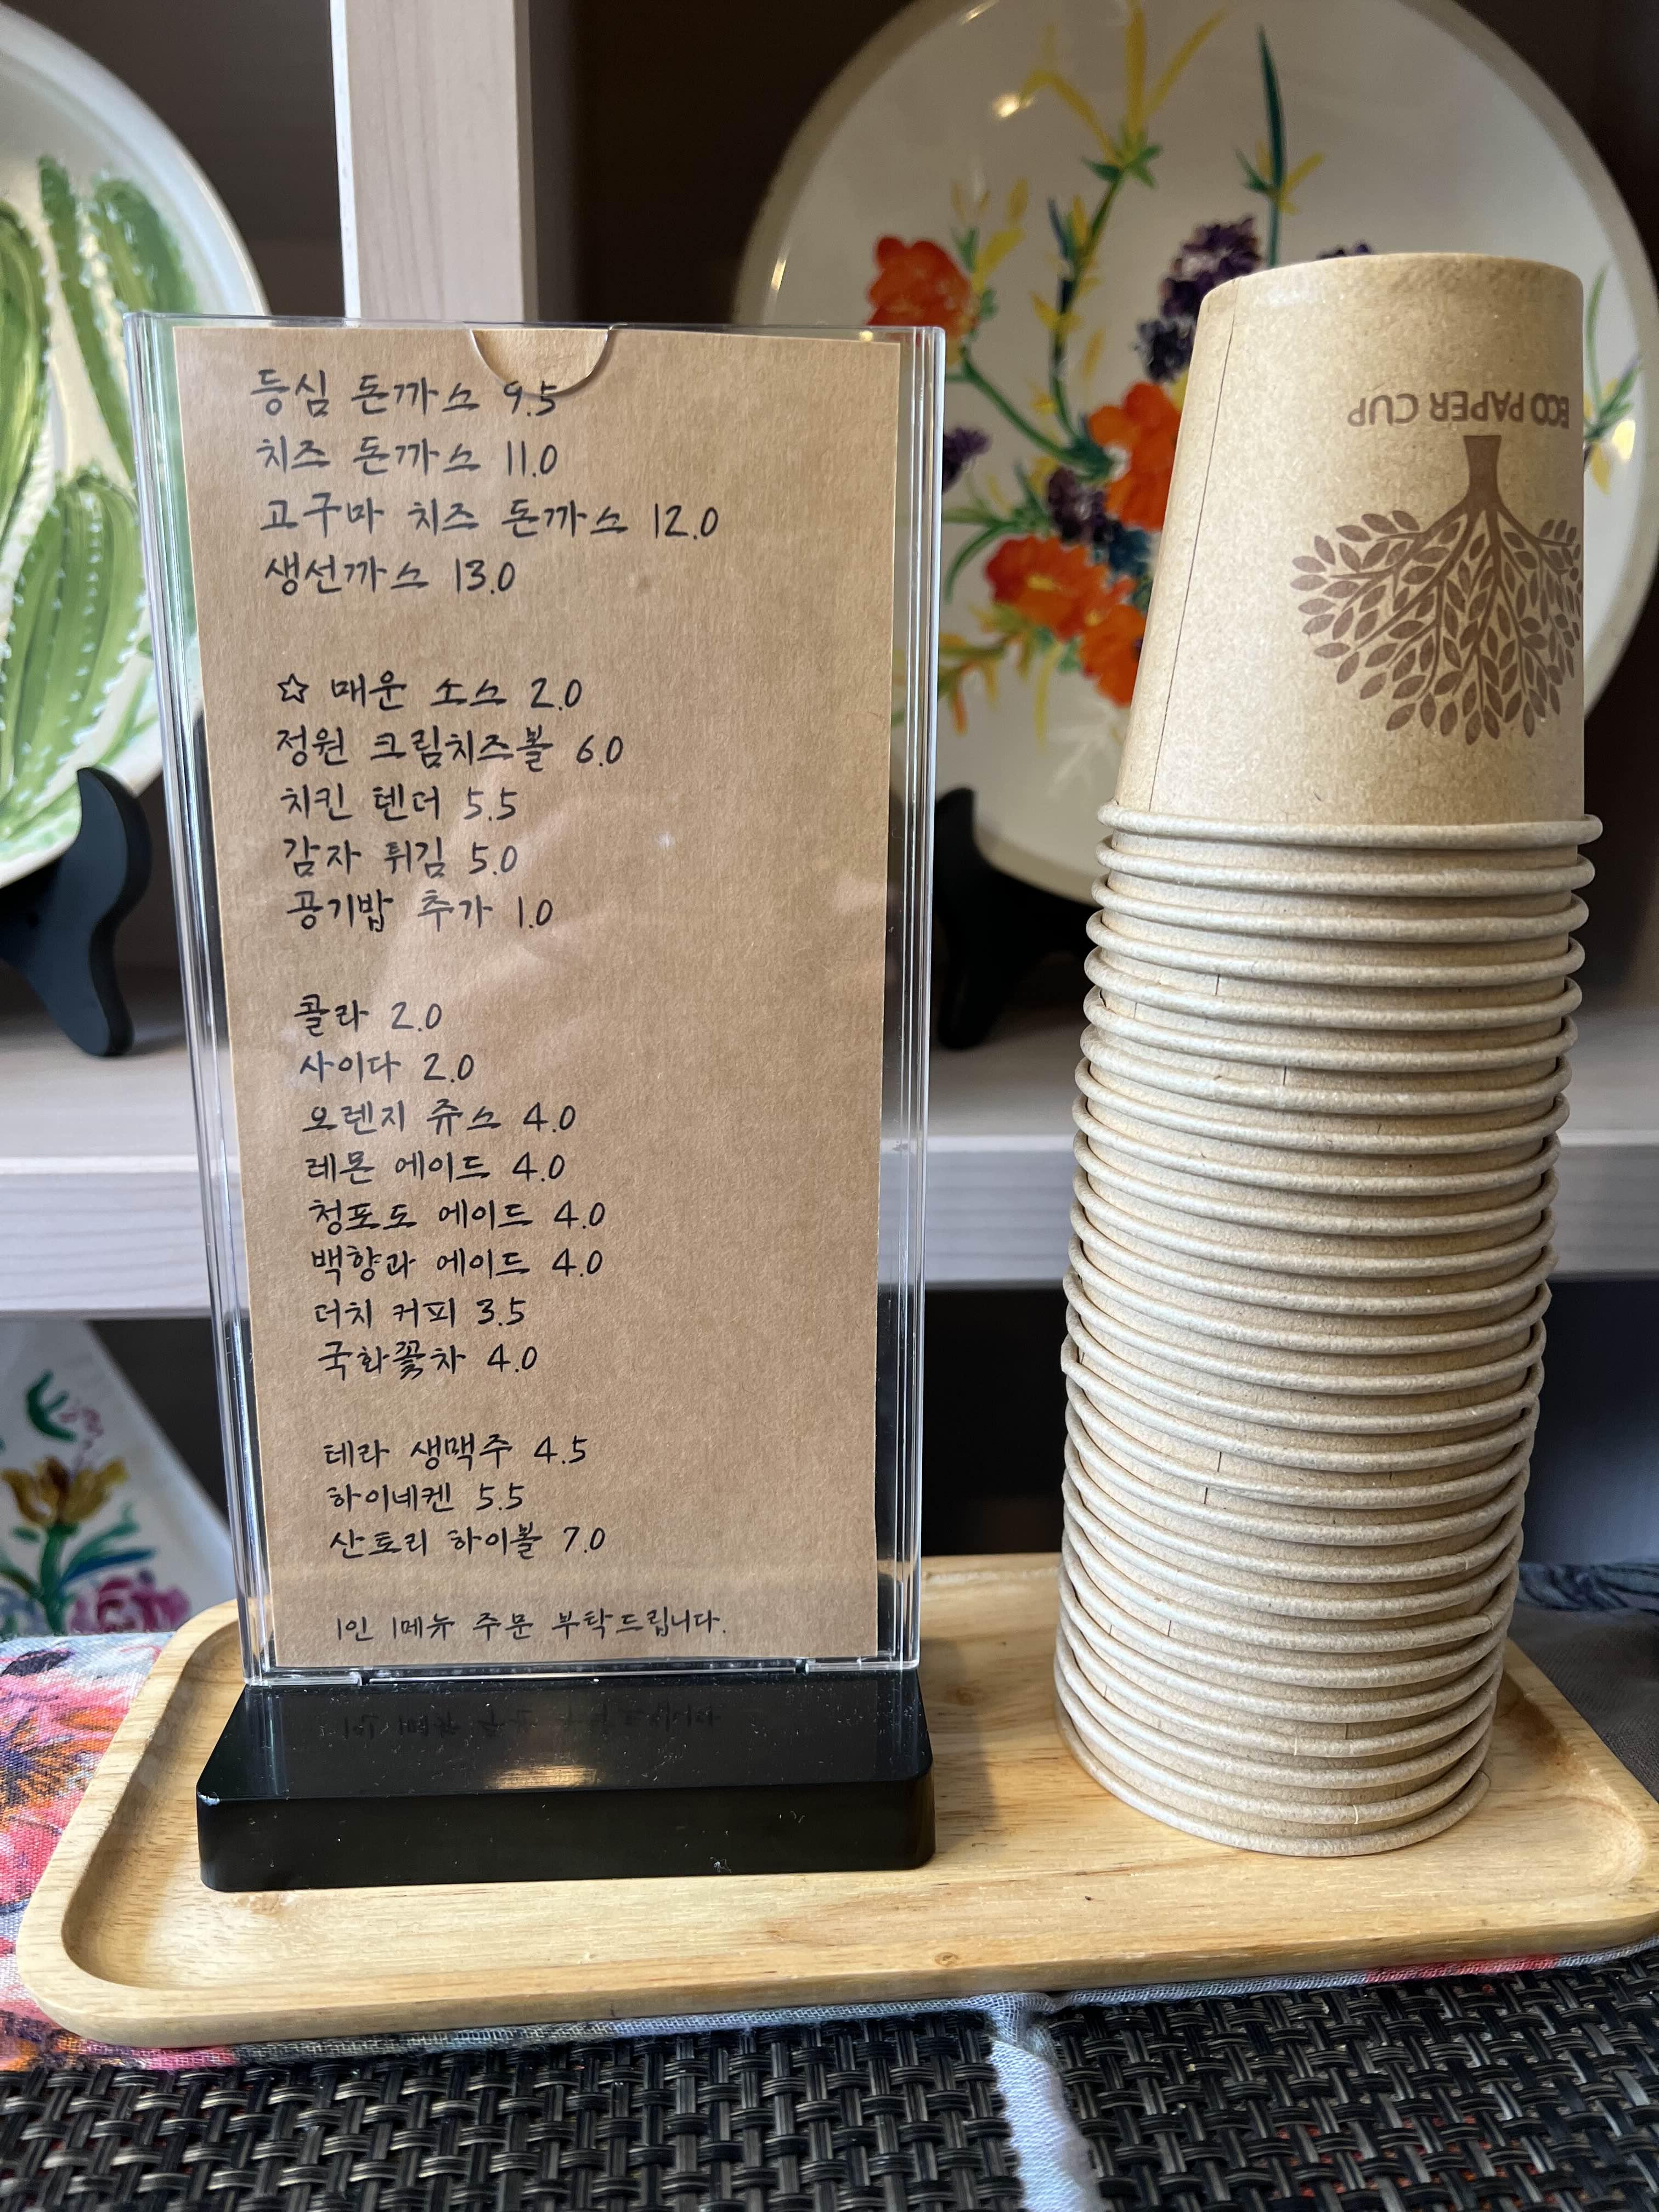 등심 돈까스 9.5
치즈 돈까스 11.0
고구마 치즈 돈까스 12.0
생선까스 13.0
☆ 매운 소스 2.0
정원 크림치즈볼 6.0
치킨 텐더 5.5
감자 튀김 5.0
공기밥 추가 1.0
콜라 2.0
사이다 2.0
오렌지 쥬스 4.0
레몬 에이드 4.0
청포도 에이드 4.0
백향과 에이드 4.0
더치 커피 3.5
국화꽃차 4.0
테라 생맥주 4.5
하이네켄 5.5
산토리 하이볼 7.0
1인 1메뉴 주문 부탁드립니다.
ECO PAPER CUP